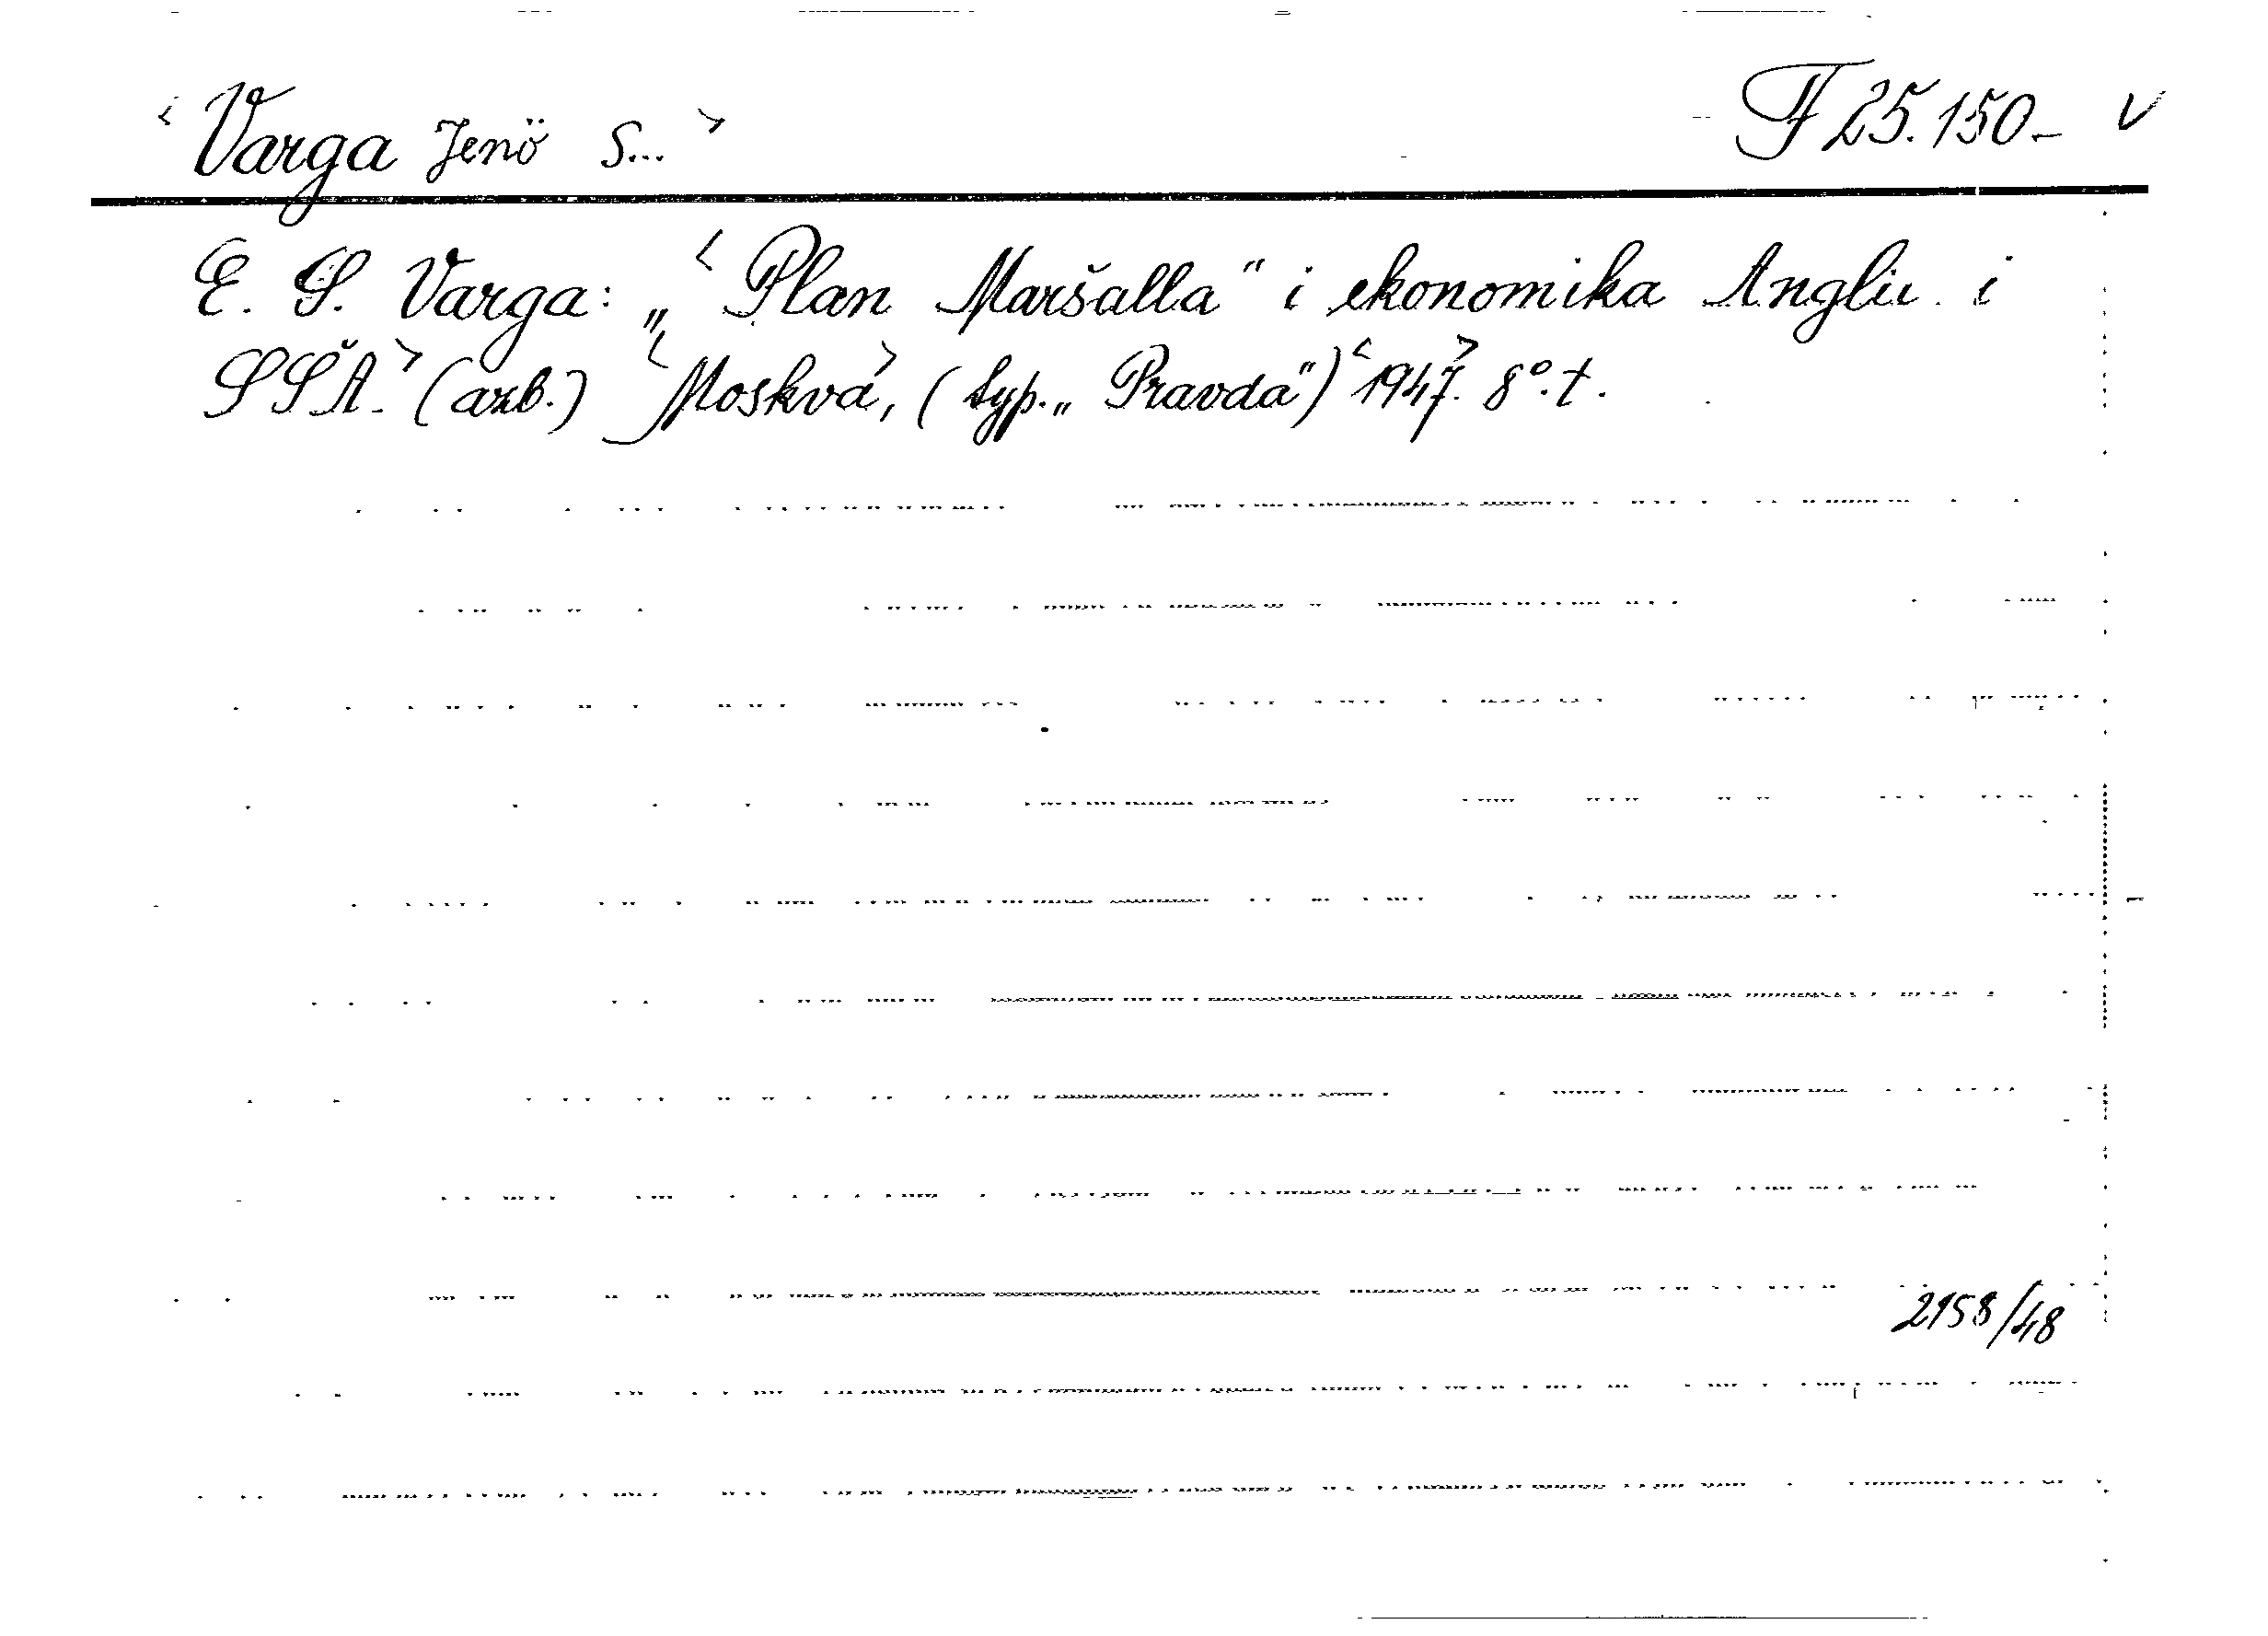 < Varga Jenö S... > F 25.150- v
E. S. Varga: „<Plan Maršalla" i ekonomika Anglii i
SŠA.> (azb.) <Moskva>, (typ. „Pravda") <1947>. 8°. t.
2158/48